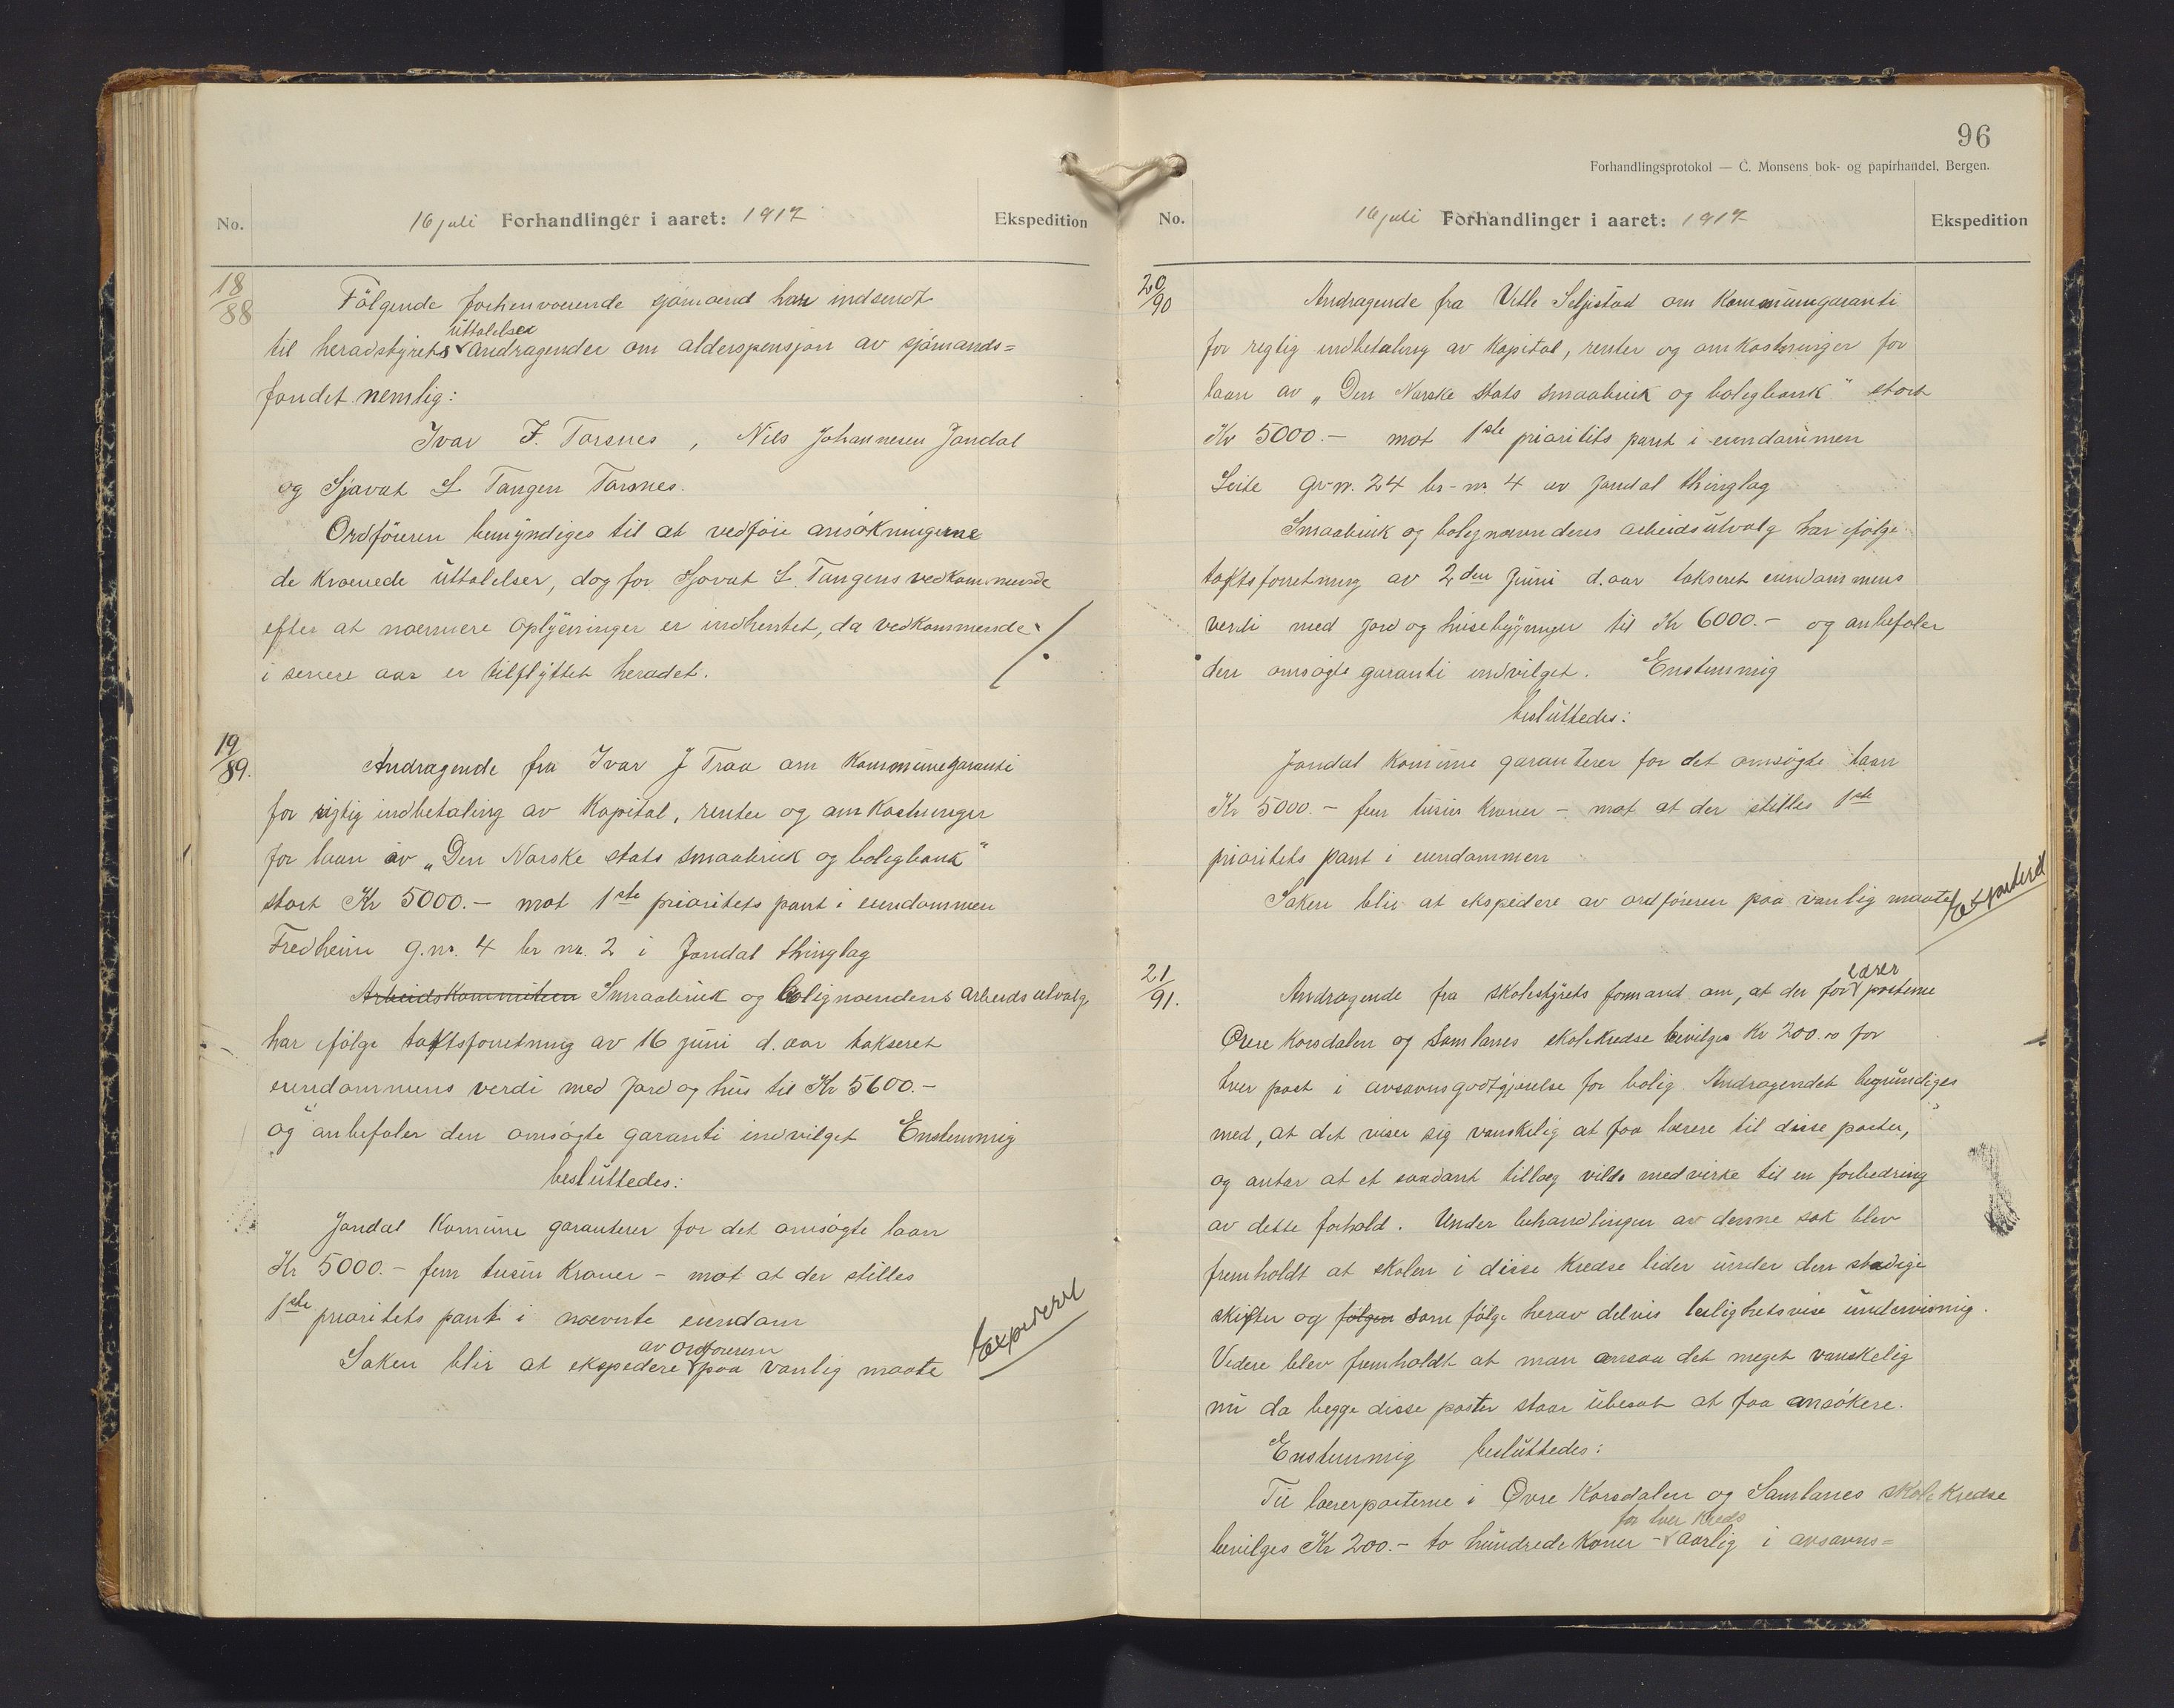 No.
16 juli Forhandlinger i aaret: 1917
Ekspedition
18/88
Følgende forhenværende sjømænd har indsendt
uttalelser
til heradstyrets andragender om alderspensjon av sjømands=
fondet nemlig:
Ivar J. Torsnes, Nils Johannesen Jondal
og Sjovat L Tangen Torsnes.
Ordføreren bemyndiges til at vedføie ansøkningerne
de krævede uttalelser, dog for Sjovat L. Tangens vedkommende
efter at nærmere oplysninger er indhentet, da vedkommende
i senere aar er tilflyttet heradet.
19/89.
Andragende fra Ivar J Traa om Kommunegaranti
for rigtig indbetaling av Kapital, renter og omkostninger
for laan av „Den Norske stats smaabruk og boligbank"
stort Kr 5000.- mot 1ste prioritets pant i eiendommen
Fredheim g.nr. 4 br nr. 2 i Jondal thinglag
Arbeidskommiteen Smaabruk og bolignævndens arbeidsutvalg
har ifølge takstsforretning av 16 juni d. aar takseret
eiendommens verdi med Jord og hus til Kr 5600.-
og anbefaler den omsøgte garanti indvilget Enstemmig
besluttedes:
Jondal Komune garanterer for det omsøgte laan
Kr 5000.- fem tusin Kroner - mot at der stilles
1ste prioritets pant i nævnte eiendom
av ordføreren
Saken blir at ekspedere paa vanlig maate
Expedert
96
Forhandlingsprotokol — C. Monsens bok- og papirhandel, Bergen.
No.
16 juli Forhandlinger i aaret: 1917
Ekspedition
20/90
Andragende fra Vetle Seljestad om Kommunegaranti
for regtig indbetaling av Kapital, renter og omkostninger for
laan av „Den Norske Stats Smaabruk og boligbank" stort
Kr 5000.- mot 1ste prioritets pant i eiendommen
Leite gr.nr. 24 br-nr. 4 av Jondal thinglag
Smaabruk og bolignævndens arbeidsutvalg har ifølge
takstsforretning av 2den Juni d. aar takseret eiendommens
verdi med Jord og husebygninger til Kr 6000.- og anbefaler
den omsøgte garanti indvilget. Enstemmig
besluttedes:
Jondal Komune garanterer for det omsøgte laan
Kr 5000.- fem tusin Kroner - mot at der stilles 1ste
prioritets pant i eiendommen
Saken blir at ekspedere av ordføreren paa vanlig maate
Expedert
21/91.
lærer
Andragende fra skolestyrets formand om, at der for posterne
Øvre Korsdalen og Samlanes skolekredse bevilges Kr 200.00 for
hver post i avsavnsgodtgjørelse for bolig. Andragendet begrundiges
med, at det viser sig vanskelig at faa lærere til disse poster,
og antar at et saadant tillæg vilde medvirke til en forbedring
av dette forhold. Under behandlingen av denne sak blev
fremholdt at skolen i disse Kredse lider under den stadige
skifter og følgen som følge herav delvis leilighetsvise undervisning.
Videre blev fremholdt at man ansaa det meget vanskelig
nu da begge disse poster staar ubesat at faa ansøkere.
Enstemmig besluttedes:
Til lærerposterne i Øvre Korsdalen og Samlanes skolekredse
for hver kreds
bevilges Kr 200.- to hundrede Kroner - aarlig i avsavns=